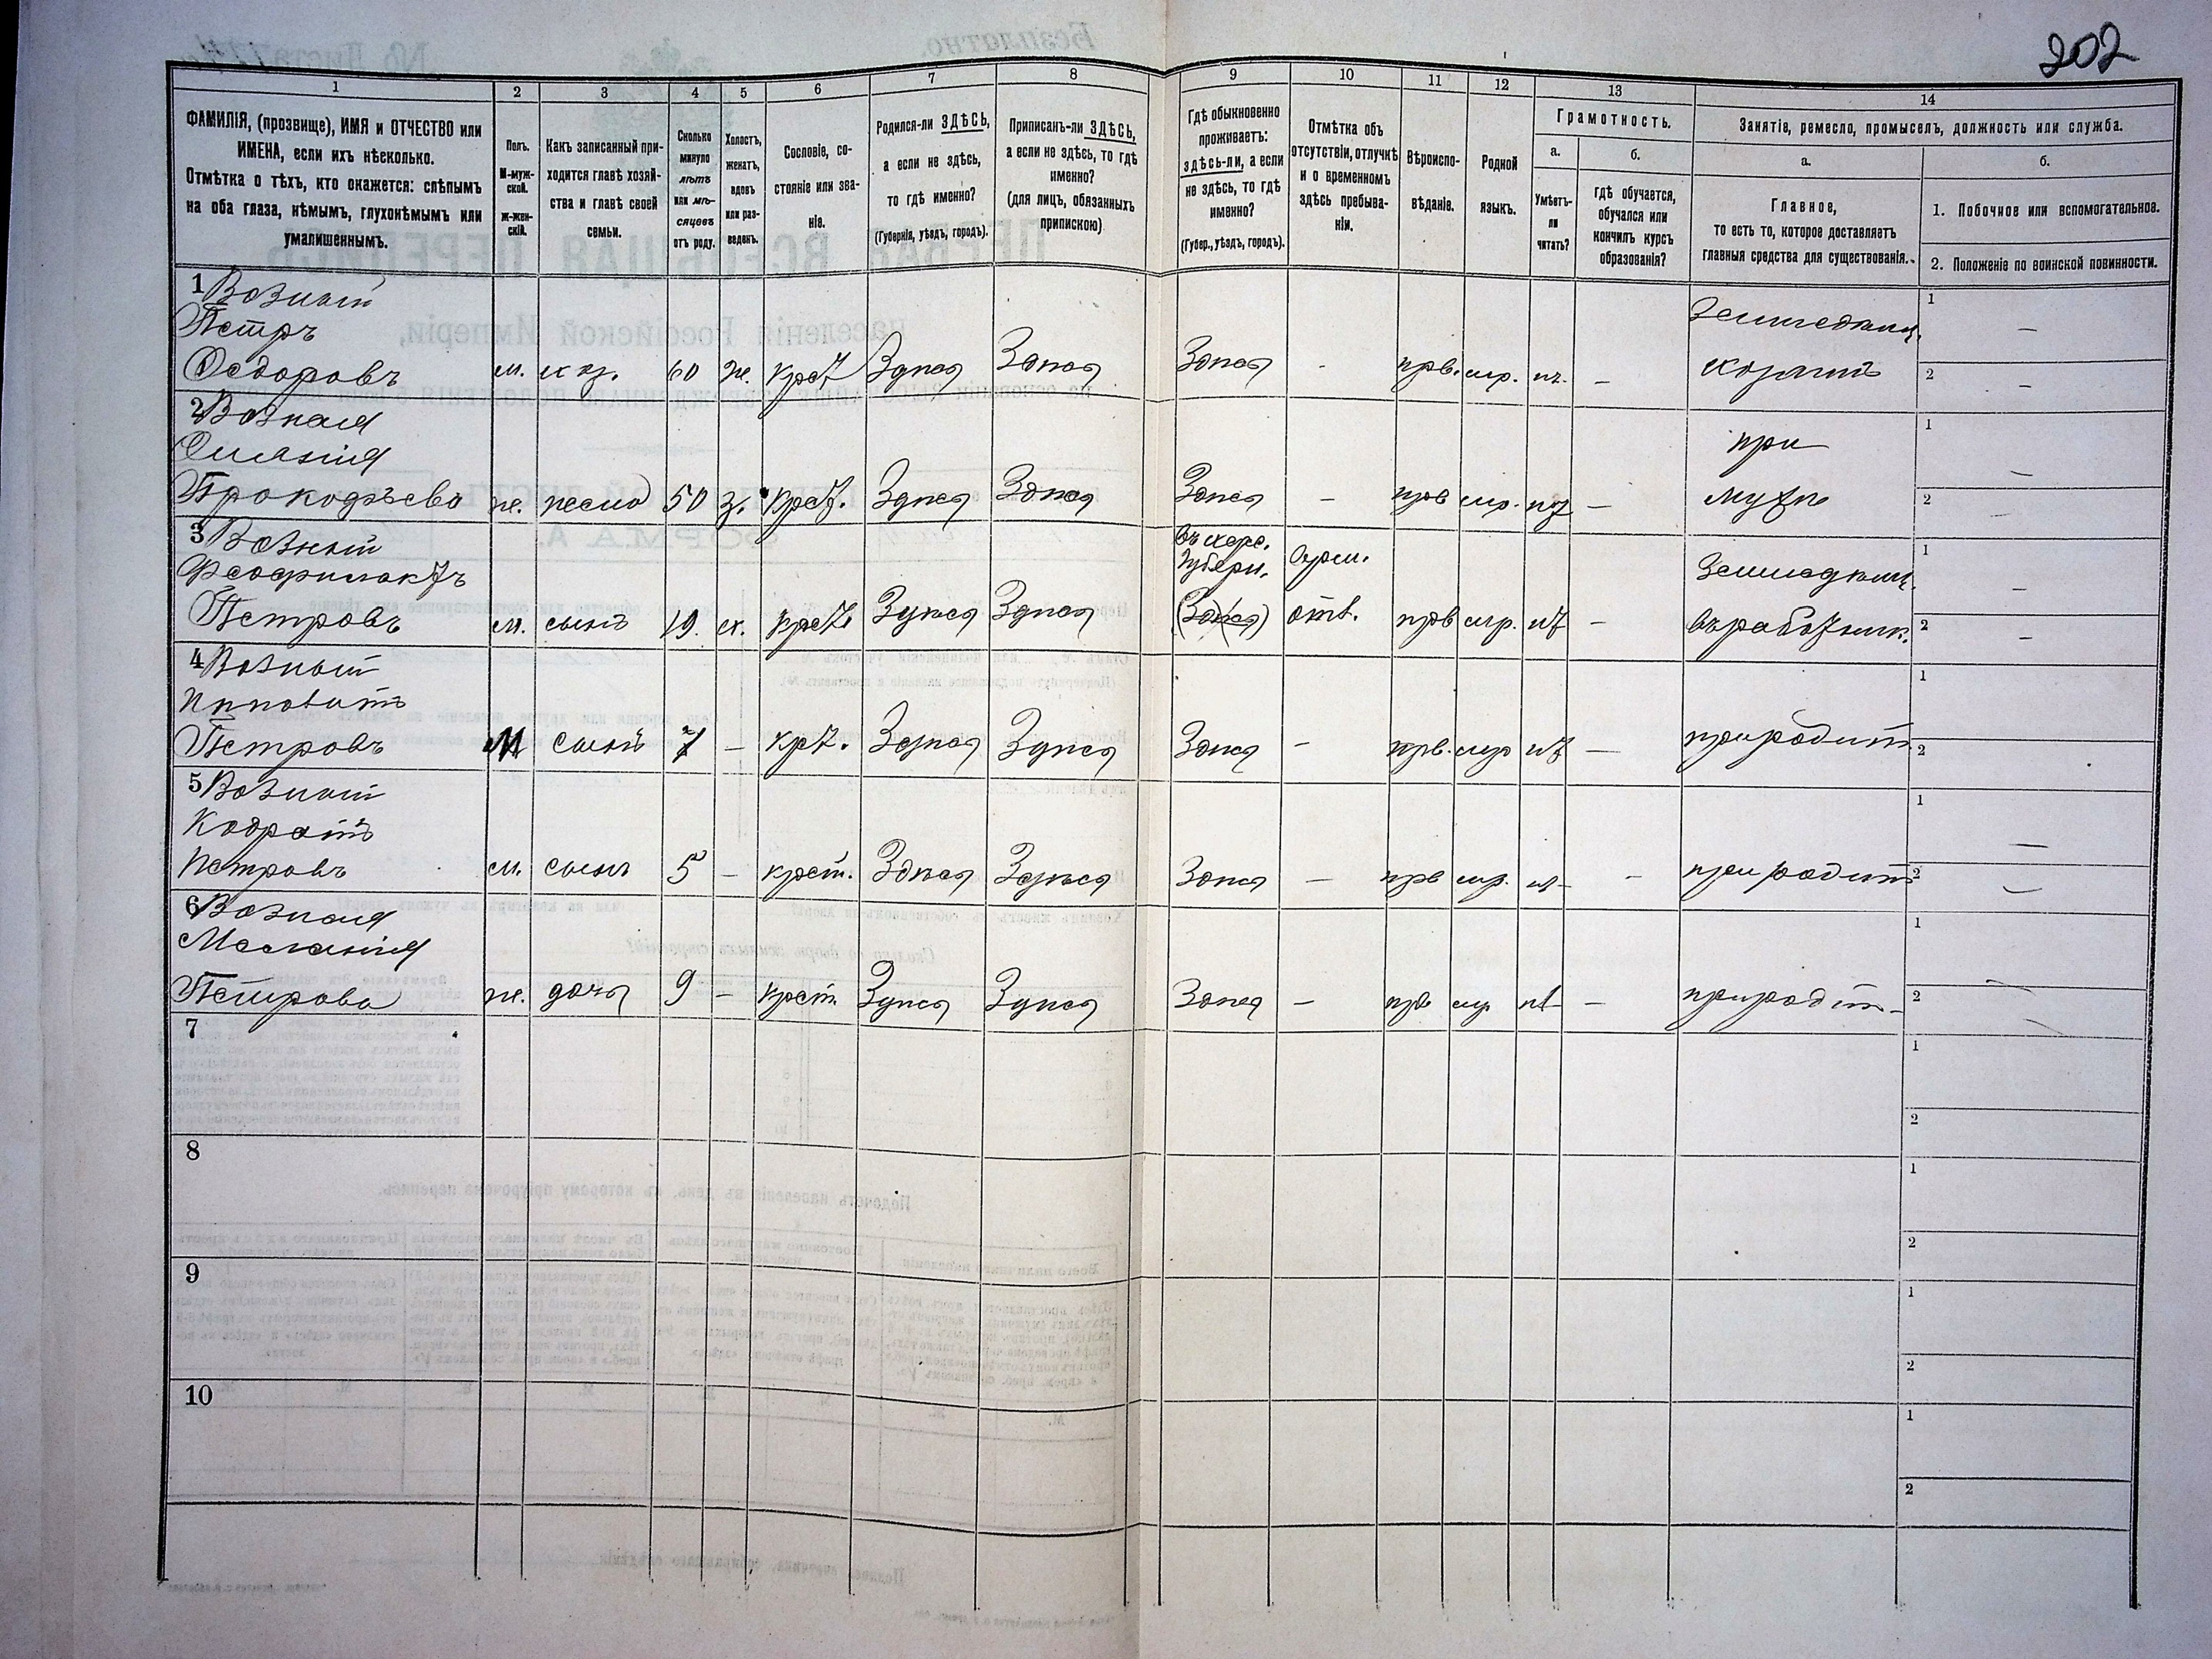 202
1
ФАМИЛІЯ, (прозвище), ИМЯ и ОТЧЕСТВО или
ИМЕНА, если ихъ нѣсколько.
Отмѣтка о тѣхъ, кто окажется: слѣпымъ
на оба глаза, нѣмымъ, глухонѣмымъ или
умалишеннымъ.
2
Полъ.
М-муж-
ской.
ж-жен-
скій.
3
Какъ записанный при-
ходится главѣ хозяй-
ства и главѣ своей
семьи.
4
Сколько
минуло
лѣтъ
или мѣ-
сяцевъ
отъ роду.
5
Холостъ,
женатъ,
вдовъ
или раз-
веденъ.
6
Сословіе, со-
стояніе или зва-
ніе.
7
Родился-ли ЗДѢСЬ,
а если не здѣсь,
то гдѣ именно?
(Губернія, уѣздъ, городъ).
8
Приписанъ-ли ЗДѢСЬ,
а если не здѣсь, то гдѣ
именно?
(для лицъ, обязанныхъ
припискою)
9
Гдѣ обыкновенно
проживаетъ:
здѣсь-ли, а если
не здѣсь, то гдѣ
именно?
(Губер., уѣздъ, городъ).
10
Отмѣтка объ
отсутствіи, отлучкѣ
и о временномъ
здѣсь пребыва-
ніи.
11
Вѣроиспо-
вѣданіе.
12
Родной
языкъ.
13
Грамотность.
а.
Умѣетъ-
ли
читать?
б.
гдѣ обучается,
обучался или
кончилъ курсъ
образованія?
14
Занятіе, ремесло, промыселъ, должность или служба.
а.
Главное,
то есть то, которое доставляетъ
главныя средства для существованія.
б.
1. Побочное или вспомогательное.
2. Положеніе по воинской повинности.
1 Возный
Петръ
Ѳедоровъ м. 60 ж. Крст Здѣся Здѣся Здѣся - прв. мр. нѣ. —
1 —
2 —
2 Возная
Прокофьева ж. 50 з. Крст. Здѣся Здѣся Здѣся — прв мр. нт — при
мужѣ
1 —
2 —
3 Возный
Феофилактъ
Петровъ м. сынъ 19. х. Крст Здѣся Здѣся
губерн.
(Здѣся) отв. прв мр. нт —
1 —
2 —
4 Возный
Петровъ М сынъ 7 — Крт. Здѣся Здѣся Здѣся — прв. мр нт — при родит.
1
2
5 Возный
Кодратъ
Петровъ м. сынъ 5 — крест. Здѣся Здѣся Здѣся — прв мр. нт — при родит
1 —
2 —
6 Возная
Меланія
Петрова ж. дочь 9 — Крест Здѣся Здѣся Здѣся — прв мр. нт — при родит.
1
2
7
1
2
8
1
2
9
1
2
10
1
2